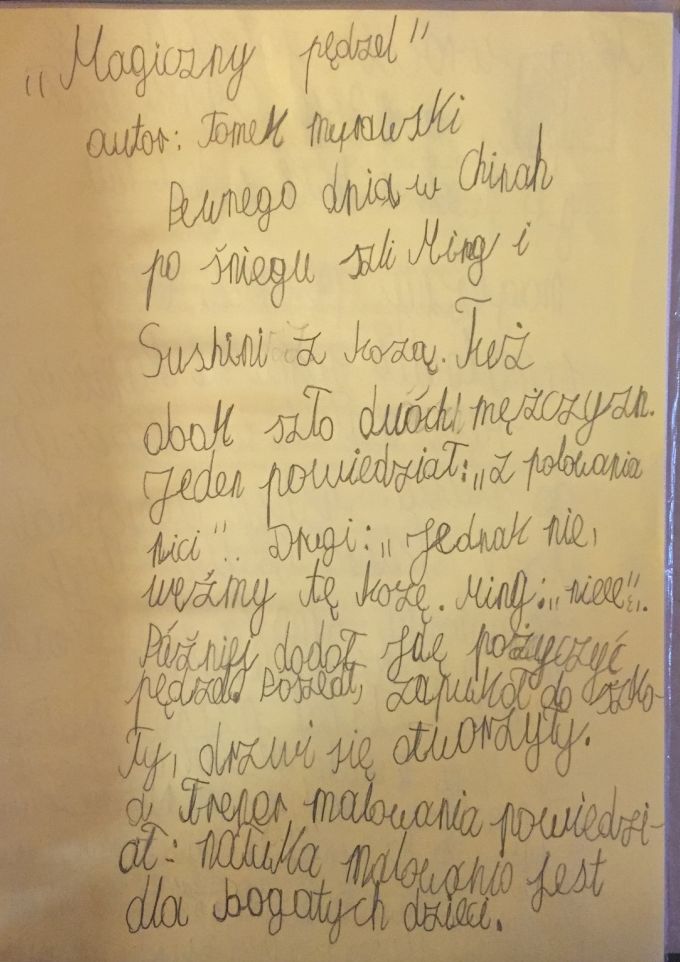 „Magiczny pędzel"
autor: Tomek Myrowski
Pewnego dnia w Chinah
po śniegu szli Ming i
Sushini z kozą. Też
obok szło dwóch mężczyzn.
Jeden powiedział: „z polowania
nici". Drugi: „Jednak nie,
weźmy tę kozę. Ming: „nieee".
Później dodał Idę pożyczyć
pędzel. Poszedł, zapukał do szko-
ły, drzwi się otworzyły.
a Trener malowania powiedzi-
ał: nauka malowania jest
dla bogatych dzieci.